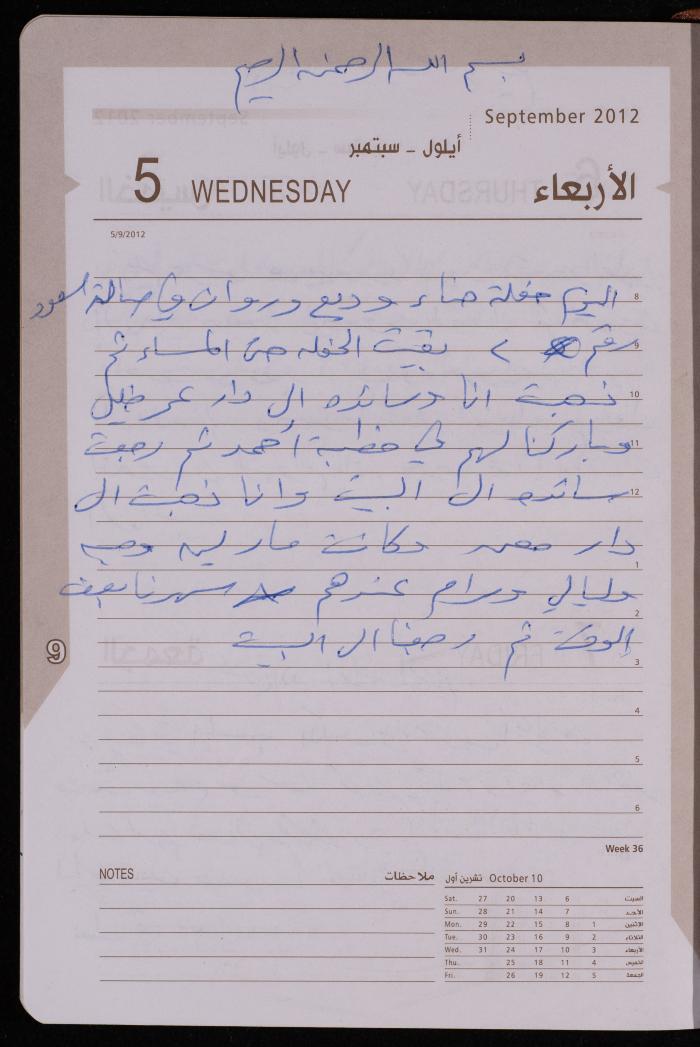 بسم الله الرحمن الرحيم
September 2012
أيلول - سبتمبر
5 WEDNESDAY الأربعاء
5/9/2012
اليوم حفلة حناء وديع وروان في صالة السعود 8
رقم 2 بقيت الحفله حتى المساء ثم 9
ذهبت انا وسائده الى دار عمر خليل 10
وباركنا لهم في خطبة أحمد ثم رجعت 11
سائده الى البيت وانا ذهبت الى 12
دار محمد وكانت مارلين 1
وليالي ومرام عندهم سهرنا بعض 2
الوقت ثم رجعنا الى البيت 3
9
4
5
6
Week 36
NOTES ملاحظات
October 10 تشرين أول
Sat. 27 20 13 6 السبت
Sun. 28 21 14 7 الأحد
Mon. 29 22 15 8 1 الاثنين
Tue. 30 23 16 9 2 الثلاثاء
Wed. 31 24 17 10 3 الأربعاء
Thu. 25 18 11 4 الخميس
Fri. 26 19 12 5 الجمعة